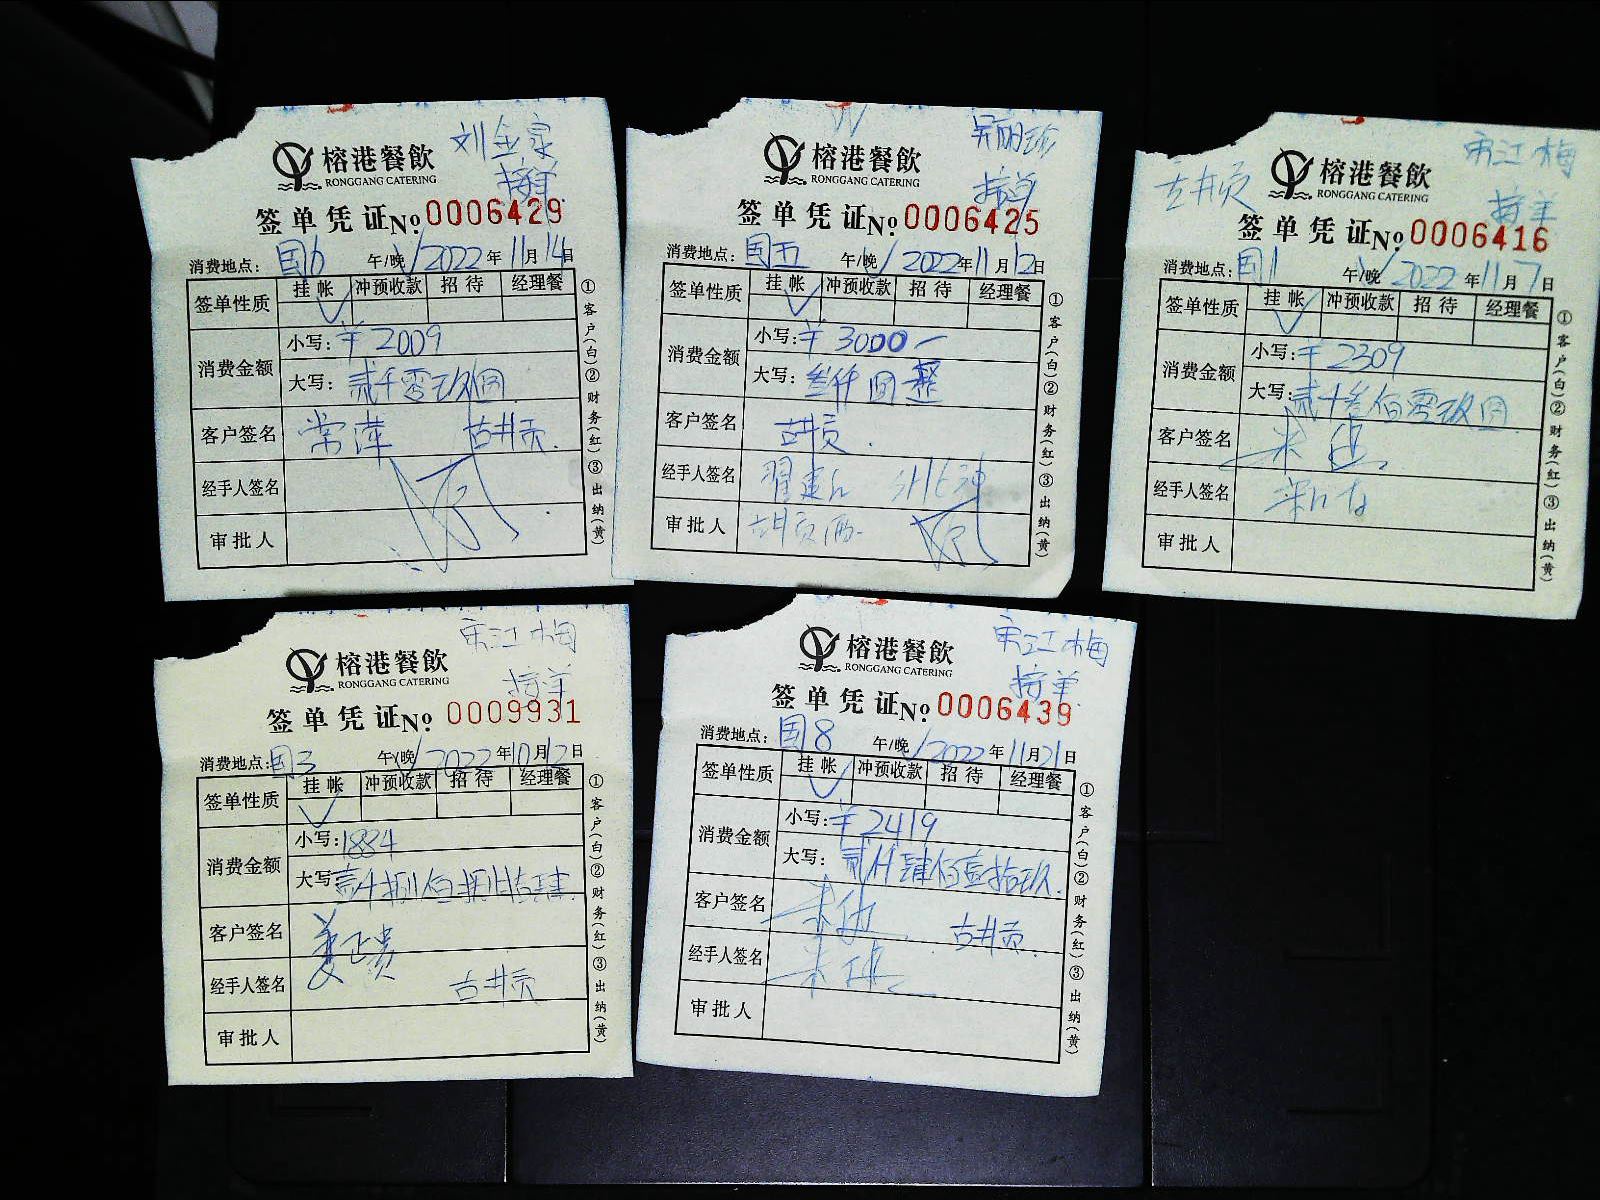 刘金家
榕港餐飲
RONGGANG CATERING
接单
签单凭证No. 0006429
消费地点: 国6 午/晚√ 2022年11月14日
签单性质 挂帐 冲预收款 招待 经理餐
√
消费金额 小写:￥2009
大写: 贰千零玖圆
客户签名 常萍 古井贡.
经手人签名
审批人
①客户(白)②财务(红)③出纳(黄)
吴丽珍
榕港餐飲
RONGGANG CATERING
接单
签单凭证No. 0006425
消费地点: 国五 午/晚√ 2022年11月12日
签单性质 挂帐 冲预收款 招待 经理餐
√
消费金额 小写:￥3000一
大写: 叁仟圆整
客户签名 古井贡.
经手人签名
审批人
①客户(白)②财务(红)③出纳(黄)
宋江梅
古井贡 榕港餐飲
RONGGANG CATERING
接单
签单凭证No. 0006416
消费地点: 国1 午/晚√ 2022年11月7日
签单性质 挂帐 冲预收款 招待 经理餐
√
消费金额 小写:￥2309
大写: 贰千叁佰零玖圆
客户签名
经手人签名
审批人
①客户(白)②财务(红)③出纳(黄)
宋江梅
榕港餐飲
RONGGANG CATERING
接单
签单凭证No. 0009931
消费地点: 国3 午/晚√ 2022年10月12日
签单性质 挂帐 冲预收款 招待 经理餐
√
消费金额 小写:1884
大写: 壹仟捌佰捌拾肆
客户签名 姜正贵
经手人签名 古井贡
审批人
①客户(白)②财务(红)③出纳(黄)
宋江梅
榕港餐飲
RONGGANG CATERING
接单
签单凭证No. 0006439
消费地点: 国8 午/晚√ 2022年11月21日
签单性质 挂帐 冲预收款 招待 经理餐
√
消费金额 小写:￥2419
大写: 贰仟肆佰壹拾玖.
客户签名 古井贡.
经手人签名
审批人
①客户(白)②财务(红)③出纳(黄)